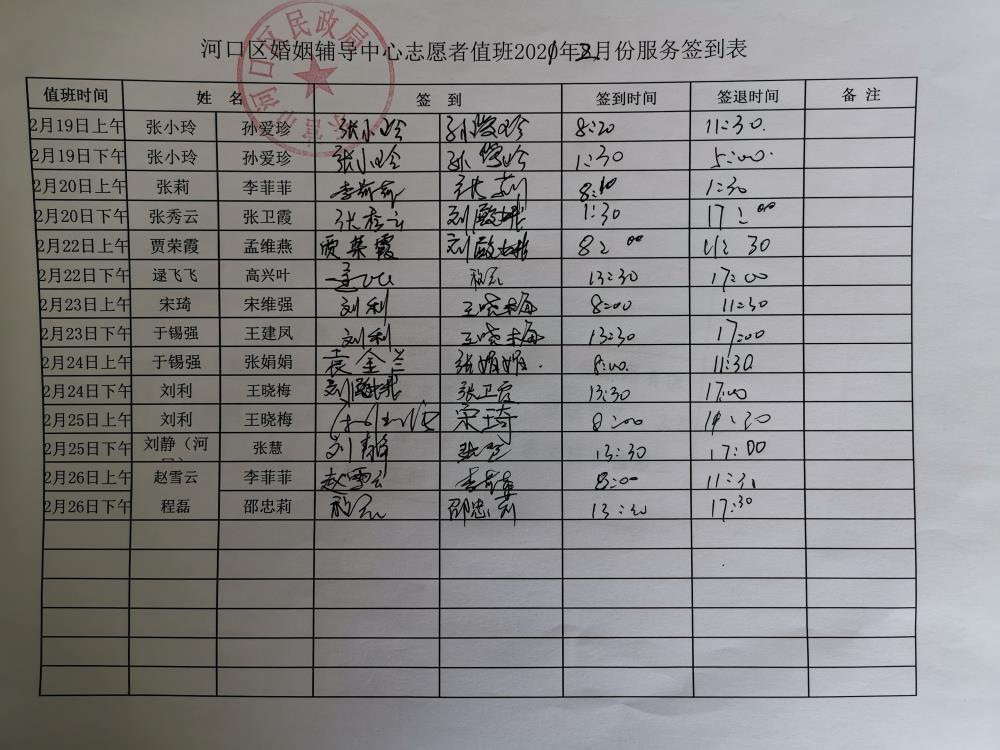 河口区婚姻辅导中心志愿者值班2021年2月份服务签到表
值班时间 姓 名 签 到 签到时间 签退时间 备 注
2月19日上午 张小玲 孙爱珍 张小玲 孙爱珍 8:20 11:30
2月19日下午 张小玲 孙爱珍 张小玲 孙爱玲 1:30 5:00
2月20日上午 张莉 李菲菲 李菲菲 张莉 8:10 1:30
2月20日下午 张秀云 张卫霞 张秀云 1:30 17:00
2月22日上午 贾荣霞 孟维燕 贾荣霞 8:00 30
2月22日下午 逯飞飞 高兴叶 13:30 17:00
2月23日上午 宋琦 宋维强 刘利 王晓梅 8:00 11:30
2月23日下午 于锡强 王建凤 刘利 王晓梅 13:30 17:00
2月24日上午 于锡强 张娟娟 袁金兰 张娟娟 8:00 11:30
2月24日下午 刘利 王晓梅 张卫霞 13:30 17:00
2月25日上午 刘利 王晓梅 宋琦 8:00 11:30
2月25日下午 刘静（河 张慧 刘静 张慧 13:30 17:00
2月26日上午 赵雪云 李菲菲 赵雪云 李菲菲 8:00 11:31
2月26日下午 程磊 邵忠莉 程磊 邵忠莉 13:30 17:30
河口区民政局